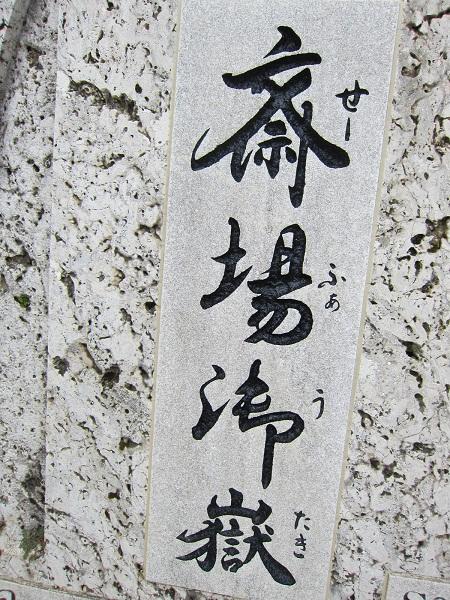 斎場御嶽
せーふぁうたき